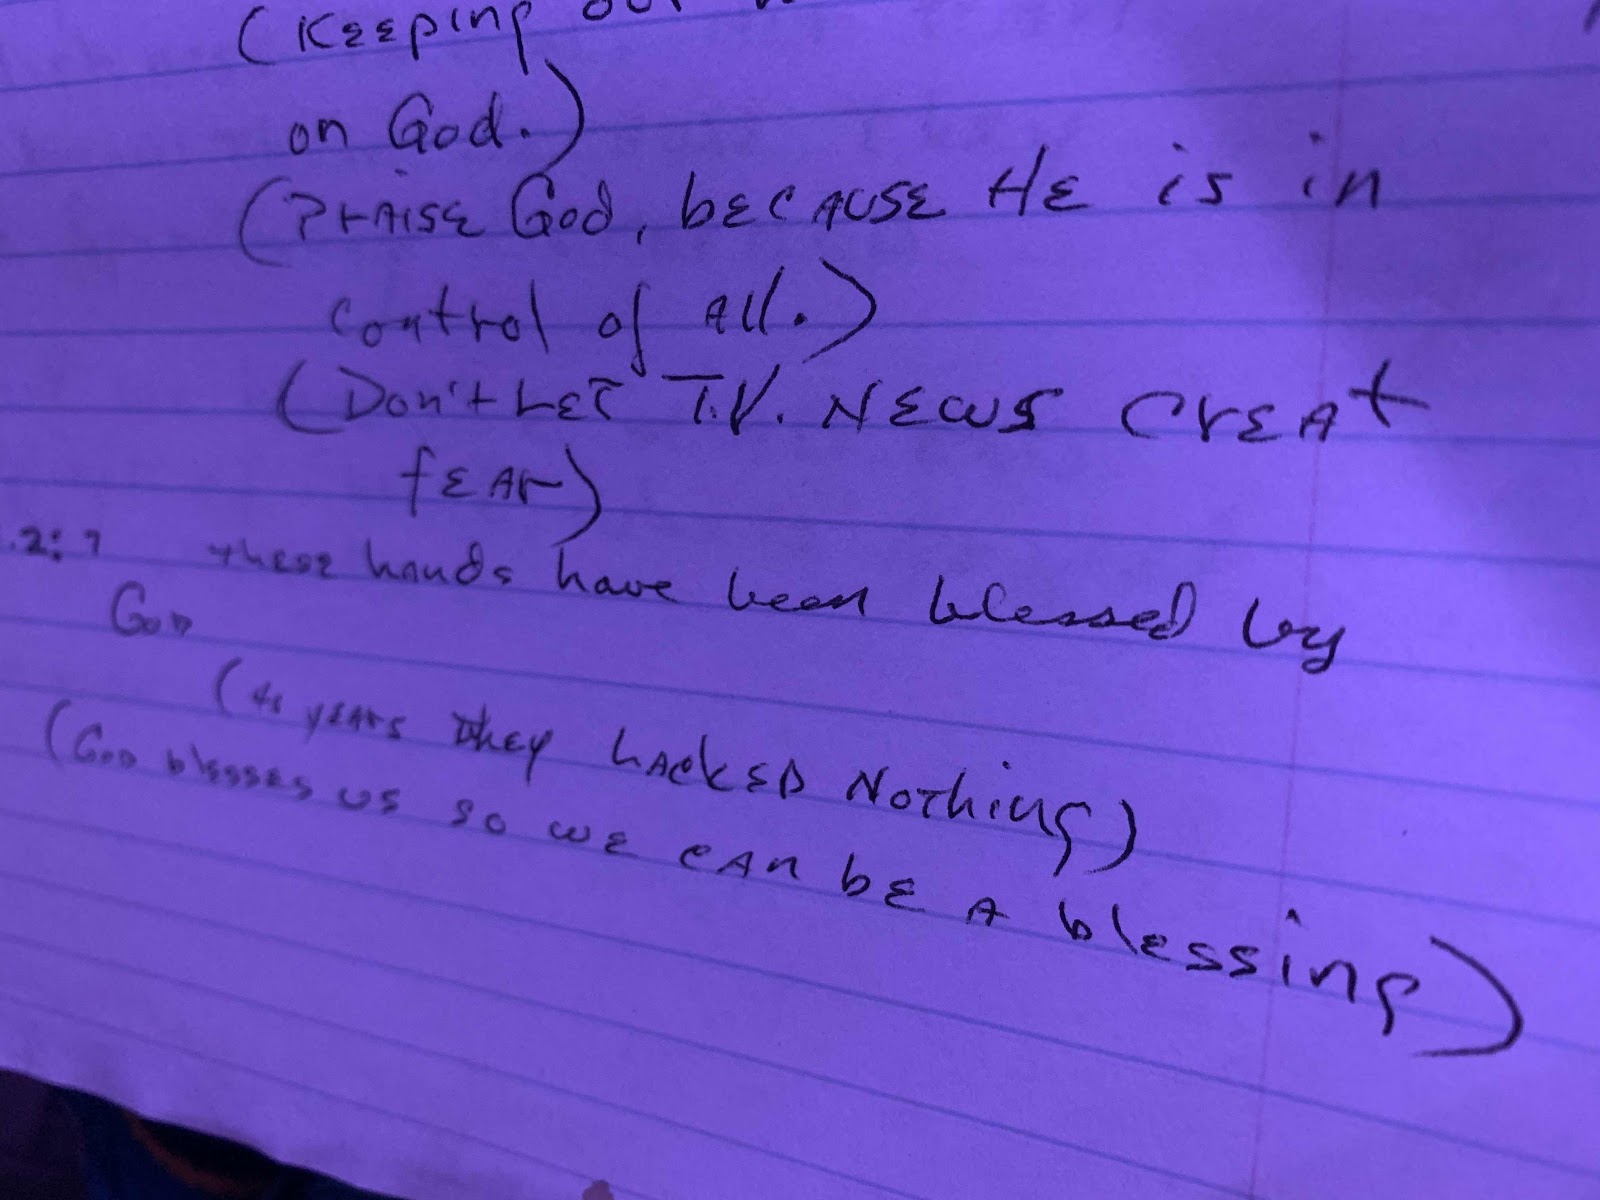 (Keeping
on God.)
(Praise God, because He is in
control of All.)
(Don't Let T.V. News Creat
fear)
.2:7 these hands have been blessed by
God
(40 years they Lacked Nothing)
(God blesses us so we can be A blessing)